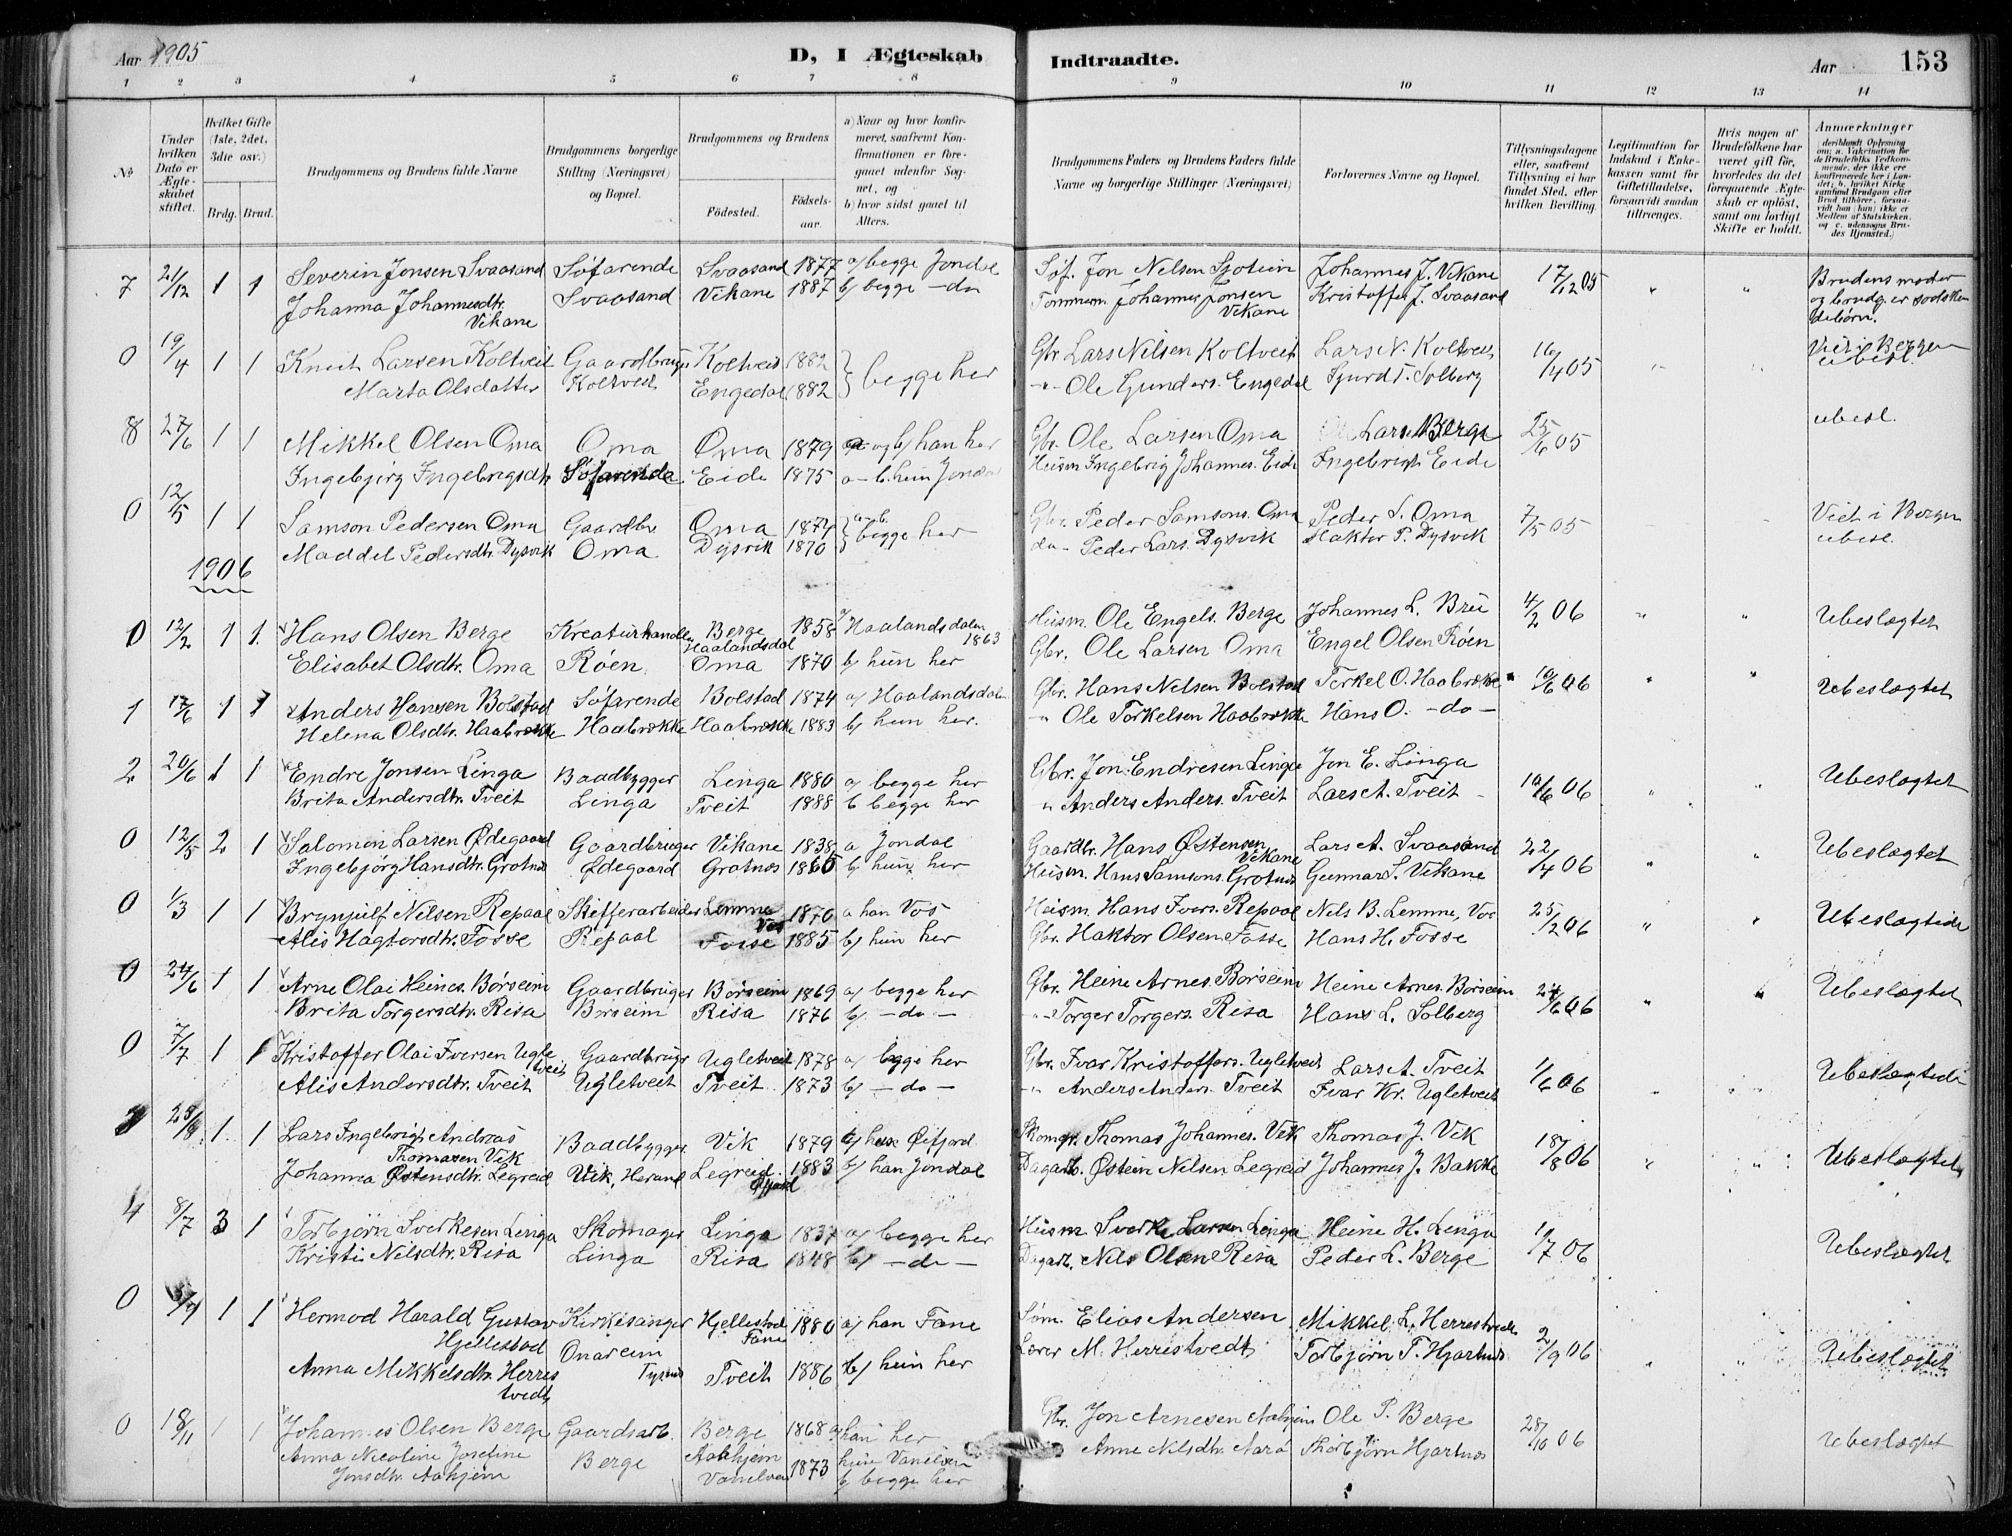 Aar 1905
D, I Ægteskab Indtraadte.
Aar 153
1 2 3 4 5 6 7 8 9 10 11 12 13 14
No
Under hvilken Dato er Ægteskabet stiftet.
Hvilket Gifte (1ste, 2det, 3die osv.)
Brdg. Brud.
Brudgommens og Brudens fulde Navne
Brudgommens borgerlige Stilling (Næringsvei) og Bopæl.
Brudgommens og Brudens
Fødested. Fødselsaar.
a) Naar og hvor konfirmeret, saafremt Konfirmationen er foregaaet udenfor Sognet, og
b) hvor sidst gaaet til Alters.
Brudgommens Faders og Brudens Faders fulde Navne og borgerlige Stillinger (Næringsvei)
Forlovernes Navne og Bopæl.
Tillysningsdagene eller, saafremt Tillysning ei har fundet Sted, efter hvilken Bevilling.
Legitimation for Indskud i Enkekassen samt for Giftetilladelse, forsaavidt saadan tiltrænges.
Hvis nogen af Brudefolkene har været gift før, hvorledes da det foregaaende Ægteskab er opløst, samt om lovligt Skifte er holdt.
Anmærkninger
7 21/12 1 1 Severin Jonsen Svaasand Søfarende Svaasand 1877 a) begge Jondal Søf. Jon Nelsen Johannes J. Vikane 17/12 05 Brudens moder
Johanna Johannesdtr. Vikane Svaasand Vikane 1887 b) begge - do Tømmerm. Johannes Jonsen Vikane Kristoffer J. Svaasand og brudg. er sødskendebørn.
0 19/4 1 1 Knut Larsen Koltveit Gaardbruger Koltveit 1882 begge her Gbr. Lars Nilsen Koltveit Lars N. Koltveit 16/4 05 Viet i Bergen
Marta Olsdatter Koltveit Engedal 1882 -"- Ole Gunders. Engedal Sjurd T. Solberg ubesl.
8 27/6 1 1 Mikkel Olsen Oma Oma Oma 1879 a og b) han her Gbr. Ole Larsen Oma Lars Berge 25/6 05 ubesl.
Ingebjørg Ingebrigsdtr Søfarende Eide 1875 a - b. hun Jondal Husm Ingebrig Johannes. Eide Ingebrigt Eide
0 12/5 1 1 Samson Pedersen Oma Gaardbr Oma 1874 a-b. begge her Gbr. Peder Samsons. Oma Peder S. Oma 7/5 05 Viet i Bergen
Maddel Pedersdtr. Dysvik Oma Dysvik 1870 do - Peder Lars. Dysvik Haktor P. Dysvik ubesl.
1906
0 12/2 1 1 Hans Olsen Berge Kreaturhandler Berge Haalandsdal 1858 a) Haalandsdalen 1863 Husm. Ole Engels. Berge Johannes L. Bru 4/2 06 " " Ubeslægtet
Elisabet Olsdtr. Oma Røen Oma 1870 b) hun her Gbr. Ole Larsen Oma Engel Olsen Røen
1 17/6 1 1 Anders Hansen Bolstad Søfarende Bolstad 1874 a) Haalandsdalen Gbr. Hans Nelsen Bolstad Terkel O. Haabrekke 10/6 06 " " Ubeslægtet
Helena Olsdtr. Haabrekke Haabrekke Haabrekke 1883 b) hun her. " Ole Torkelsen Haabrekke Hans O. - do -
2 20/6 1 1 Endre Jonsen Linga Baadbygger Linga 1880 a) begge her Gbr. Jon Endresen Linga Jon E. Linga 10/6 06 " " Ubeslægtet
Brita Andersdtr. Tveit Linga Tveit 1888 b begge her " Anders Anders. Tveit Lars A. Tveit -
0 12/5 2 1 Salomon Larsen Ødegaard Gaardbruger Vikane 1838 a Jondal Gaardbr. Hans Østensen Vikane Lars A. Svaasand 22/4 06 " " Ubeslægtet
Ingebjørg Hansdtr. Grotnes Ødegaard Grotnes 1865 b) hun her Husm. Hans Samsons. Grotnes Gunnar S. Vikane
0 1/3 1 1 Brynjulf Nelsen Repaal Skifferarbeider Lemme Vos 1870 a han Vos Husm. Hans Ivers. Repaal Nils B. Lemme, Vos 25/2 06 " " Ubeslægtede
Alis Hagtorsdtr. Fosse Repaal Fosse 1885 b) hun her Gbr. Haktor Olsen Fosse Hans H. Fosse
0 24/6 1 1 Arne Olai Heines. Børseim Gaardbruger Børseim 1869 a) begge her Gbr. Heine Arnes. Børseim Heine Arnes. Børseim 24/6 06 " " Ubeslægtet
Brita Torgersdtr. Risa Børseim Risa 1876 b) - do - -"- Torger Torgers. Risa Hans L. Solberg
0 7/7 1 1 Kristoffer Olai Iversen Ugletveit Gaardbruger Ugletveit 1878 a) begge her Gbr. Ivar Kristoffers. Ugletveit Lars A. Tveit 1/6 06 " " Ubeslægtede
Alis Andersdtr. Tveit Ugletveit Tveit 1873 b) - do - " Anders Anders. Tveit Ivar Kr. Ugletveit
3 1 1 Lars Ingebrigt Andreas Thomasen Vik Baadbygger Vik 1879 b) hun Øifjord Skomgr. Thomas Johannes. Vik Thomas J. Vik 18/8 06 " " Ubeslægtet
Johanna Østensdtr. Legreid Vik, Herand Legreid Øifjord 1883 b) han Jondal Dagarb. Østein Nelsen Legreid Johannes J. Bakke
4 8/7 3 1 Torbjørn Sverkesen Linga Skomager Linga 1837 a) begge her Husm. Sverke Larsen Linga Heine H. Linga 1/7 06 Ubeslægtet
Kristi Nelsdtr. Risa Linga Risa 1848 b) - do - Dagarb. Nils Olsen Risa Peder L. Berge
0 1 1 Hermod Harald Gustav Hjellestad Kirkesanger Hjellestad Fane 1880 a) han Fane Søm. Elias Andersen Mikkel L. Herrestvedt 2/9 06 " " Ubeslægtet
Anna Mikkelsdtr. Herrestvedt Onareim Tysnes Tveit 1886 b) hun her Lærer M. Herrestvedt Torbjørn T. Hjartnes
0 18/11 1 1 Johannes Olsen Berge Gaardsarb. Berge 1868 a) han her Gbr. Jon Arnesen Aahjem Ole P. Berge 28/10 06 Ubeslægtet
Anna Nicoline Josefine Jonsdtr. Aahjem Berge Aahjem Vanelven 1873 hun Vanelven b) begge her Anne Nilsdtr. Aarø Thorbjørn Hjartnes